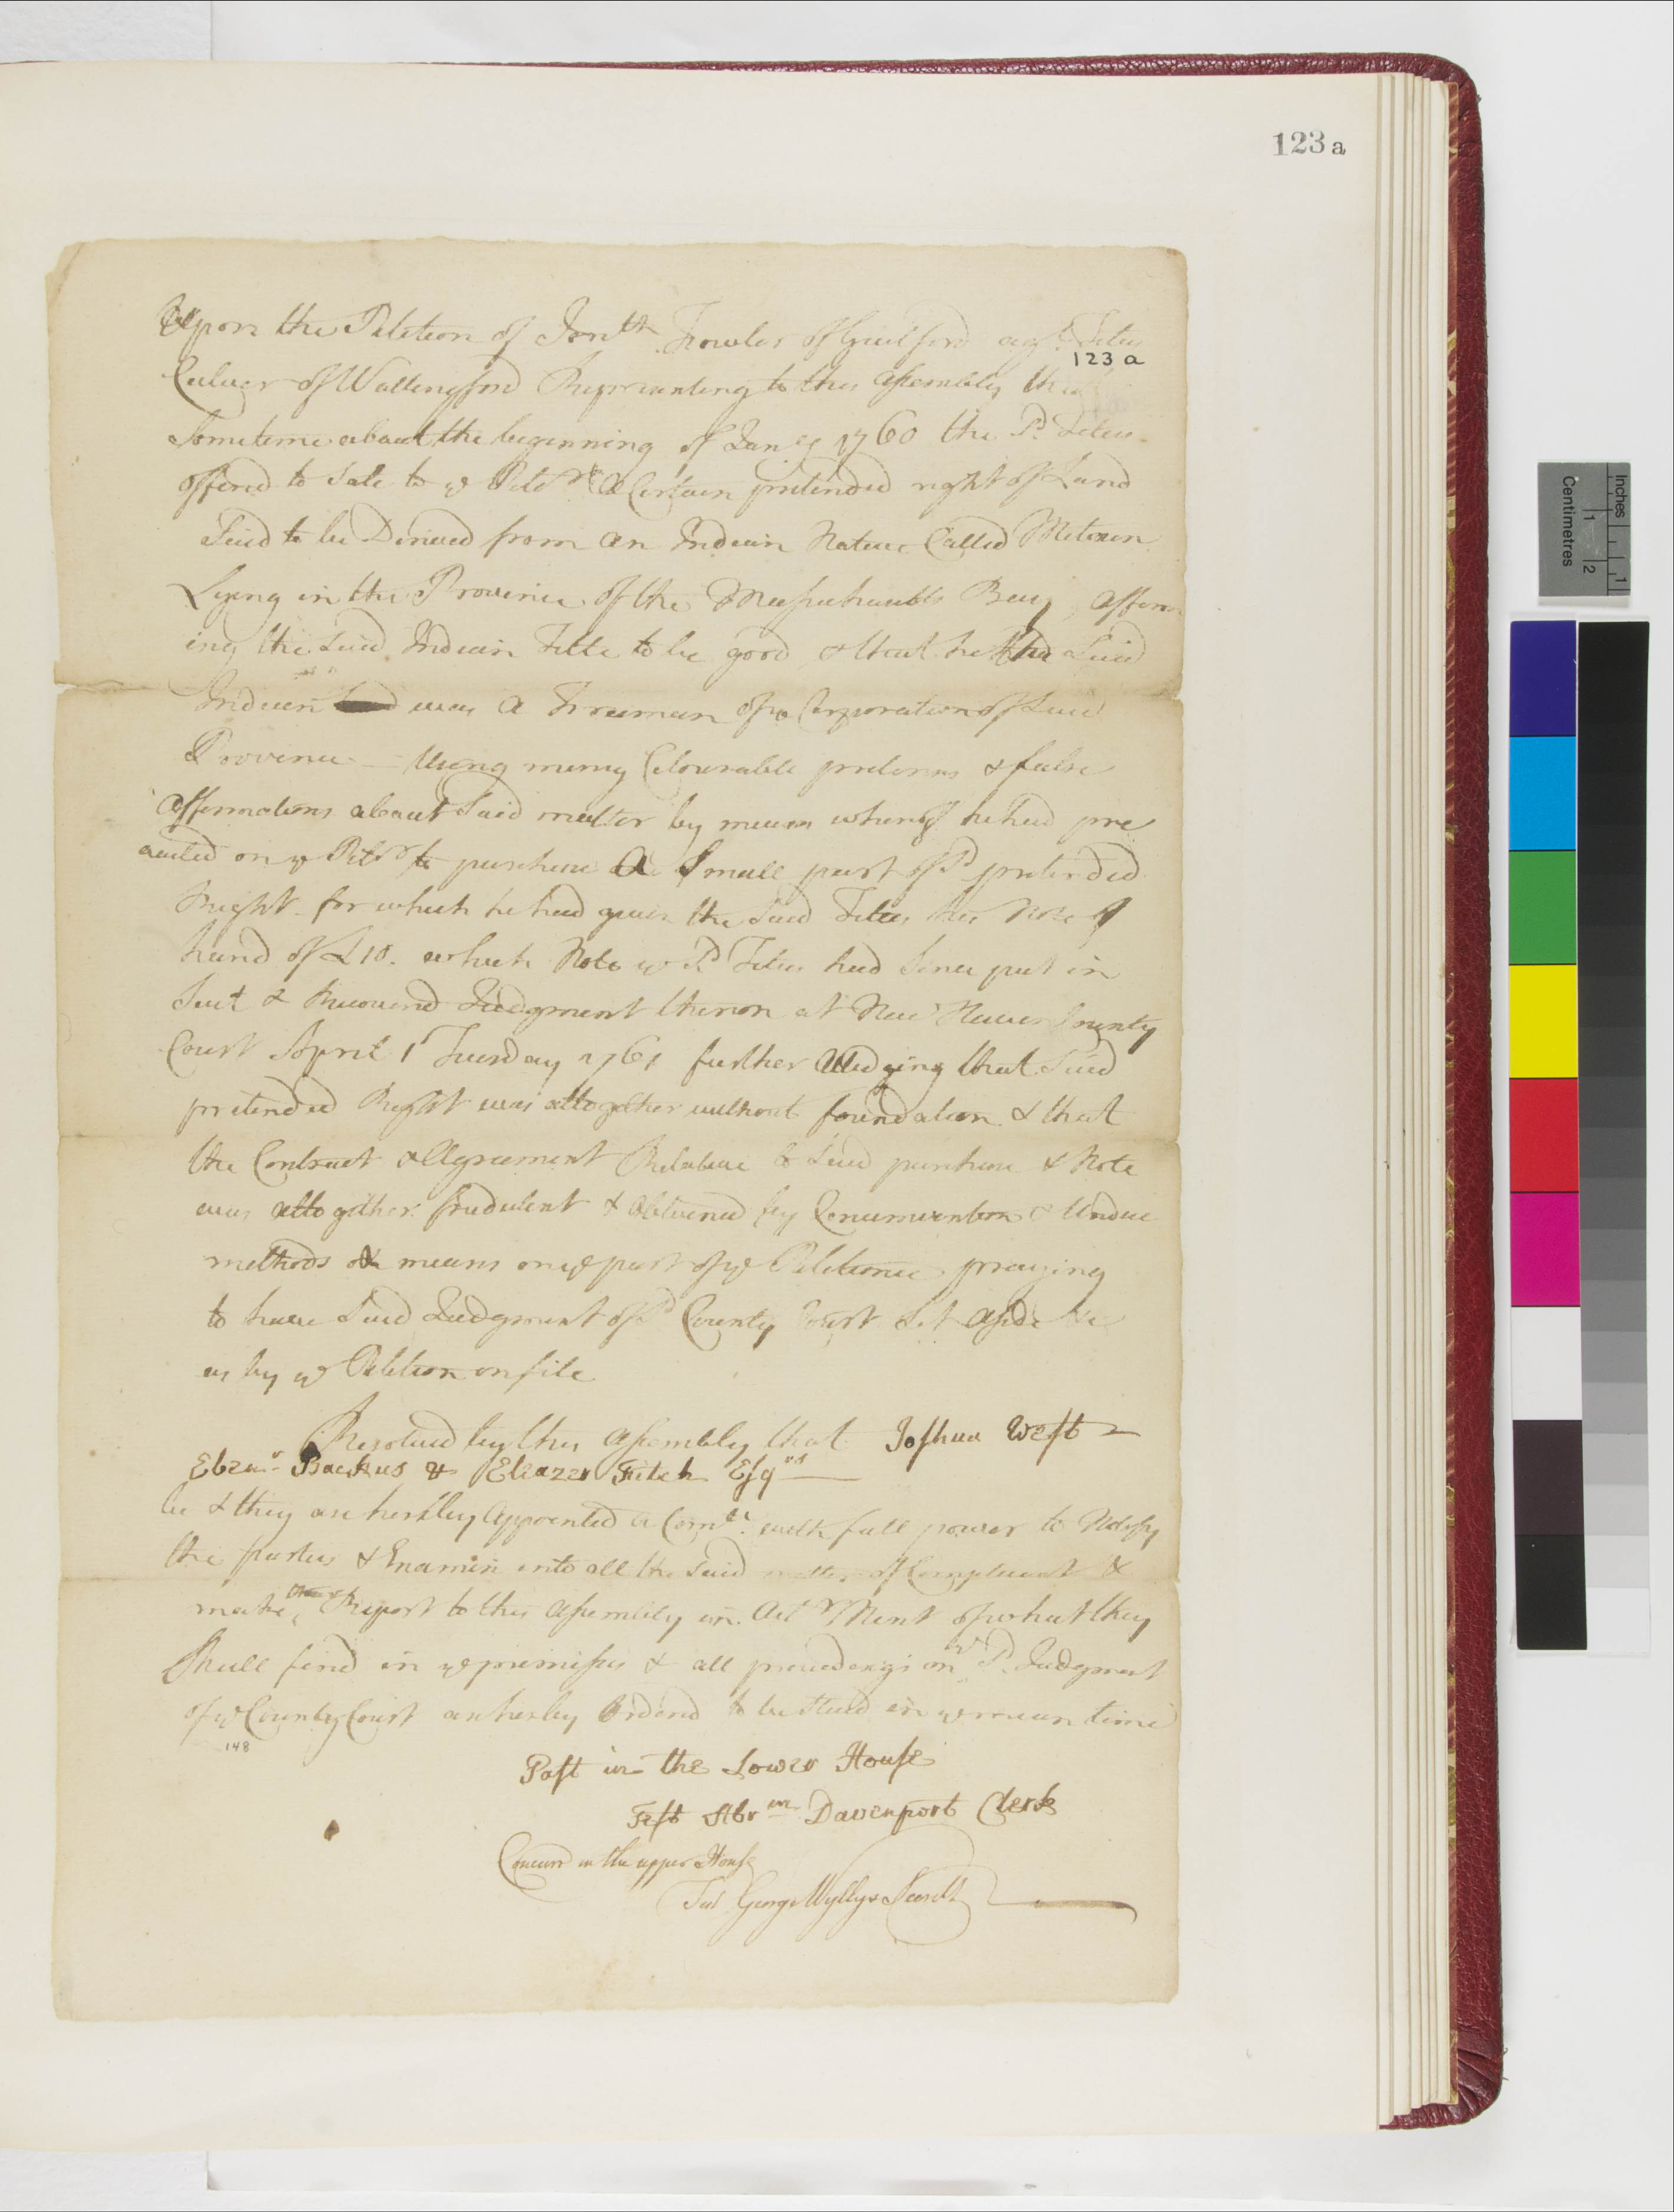 123 a
Upon the Petition of Jonth Fowler of Guilford agst Titus
123 a
Culver of Wallingford Representing to this Assembly that
Sometime about the beginning of Janry 1760 the sd Titus
offered to Sale to ye Petr a Certain pretended right of Land
Said to be Derived from an Indian Native Called Metoxen
Lying in the Province of the Massachusetts Bay, affirm
ing the Said Indian Title to be good & that he the Said
Indian was a Freeman of ye Corporation of Said
Province – Using many Colourable pretences & false
affirmations about Said matter by means whereof he had pre
vailed on ye Petr to purchase a Small part of sd pretended
Right for which he had given the Said Titus his Note of
hand of £10. which Note ye sd Titus had Since put in
Suit & Recovered Judgment thereon at New Haven County
Court April 1st Tuesday 1761 further alledging that Said
pretended Right was altogether without foundation & that
the Contract & Agreement Relative to Said purchase & Note
was altogether fradulent & Obtained by Circumvention & Undue
methods & means on ye part of ye Petitionee praying
to have Said Judgment of sd County Court Set aside &c
as by ye Petition on file
Resolved by this Assembly that Joshua West
Ebenr Backus & Eleazer Fitch Esqrs
be & they are hereby Appointed a Comtee with full power to Notify
the parties & Examin into all the Said matter of Complaint &
make their Report to this Assembly in Oct Next of what they
Shall find in ye premises & all proceedings on ye sd Judgment
of ye County Court are hereby Ordered to be Staid in ye mean time
148
Past in the Lower House
Test Abrm Davenport Clerk
Concurd in the upper House
Test George Wyllys Secrett